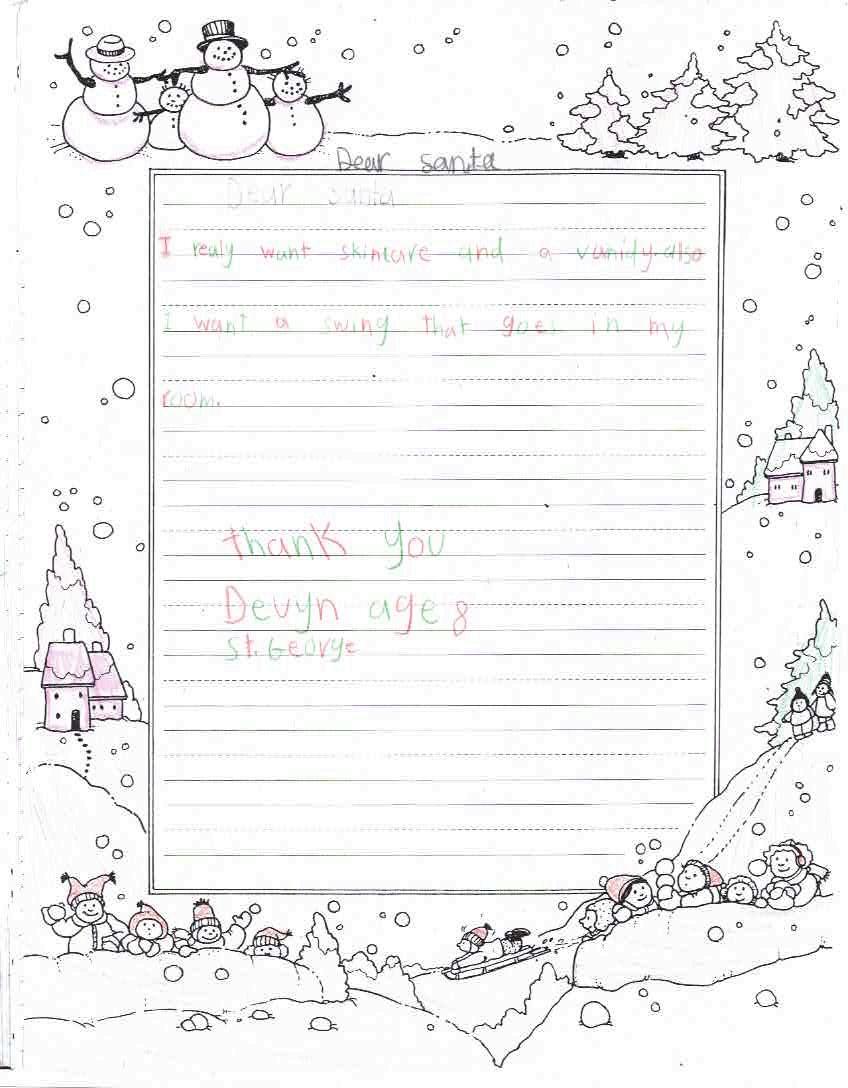 Dear santa
Dear santa
I realy want skincare and a vanidy. also
I want a swing that goes in my
room.
thank you
Devyn age 8
St. George